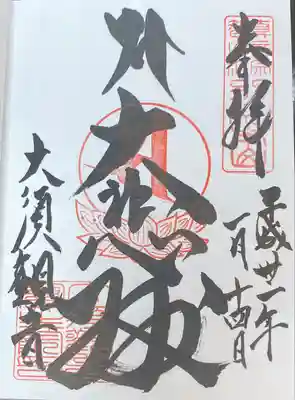 奉拝
平成廿一年
一月十四日
大悲殿
大須観音